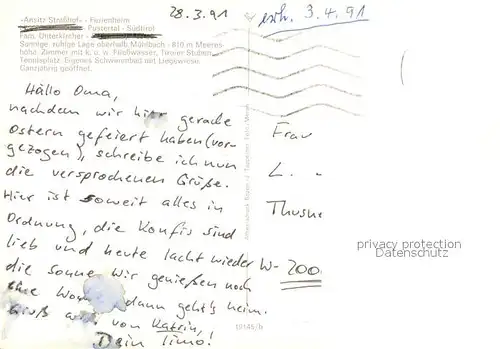 28.3.91
erh. 3.4.91
»Ansitz Straßhof« - Ferienheim
- Pustertal - Südtirol
Fam. Unterkircher -
Sonnige, ruhige Lage oberhalb Mühlbach - 810 m Meeres-
höhe. Zimmer mit k. u. w. Fließwasser, Tiroler Stuben,
Tennisplatz, Eigenes Schwimmbad mit Liegewiese.
Ganzjährig geöffnet.
Hallo Oma,
nachdem wir hier gerade
Ostern gefeiert haben (vor-
gezogen), schreibe ich nun
die versprochenen Grüße.
Hier ist soweit alles in
Ordnung, die Konfis sind
lieb und heute lacht wieder
die Sonne. Wir genießen noch
dann geht's heim.
von Katrin,
Dein Timo!
Frau
L.
Thusne
W-200
privacy protection
Datenschutz
19145/b